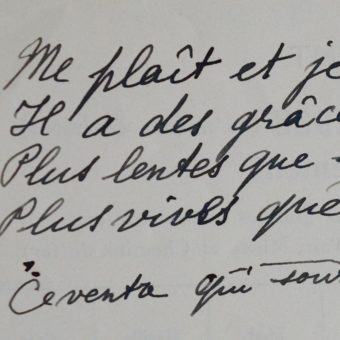 Me plaît et je
Il a des grâce
Plus lentes que
Plus vives que
Ceventa qui sour